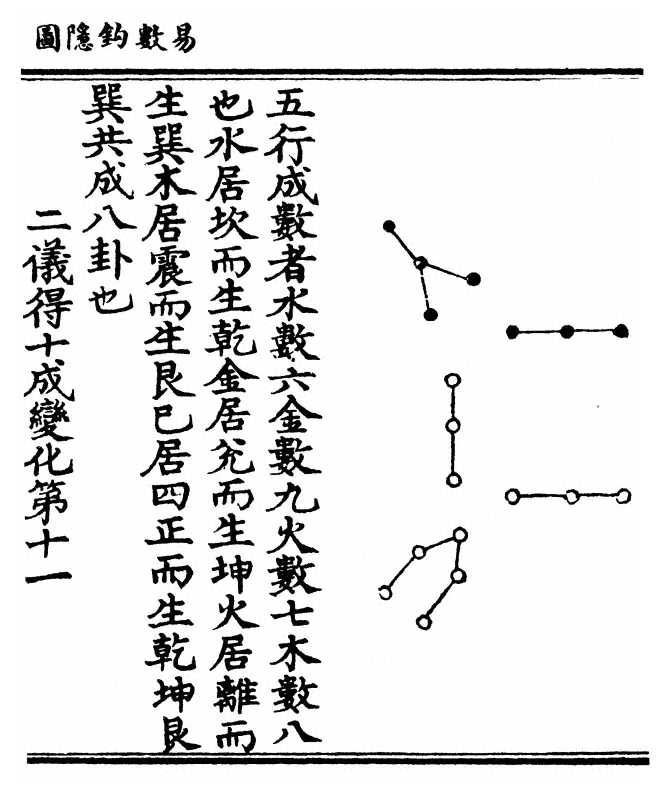 易數鈎隱圖
五行成數者水數六金數九火數七木數八
也水居坎而生乾金居兊而生坤火居離而
生巽木居震而生艮巳居四正而生乾坤艮
巽共成八卦也
二儀得十成變化第十一